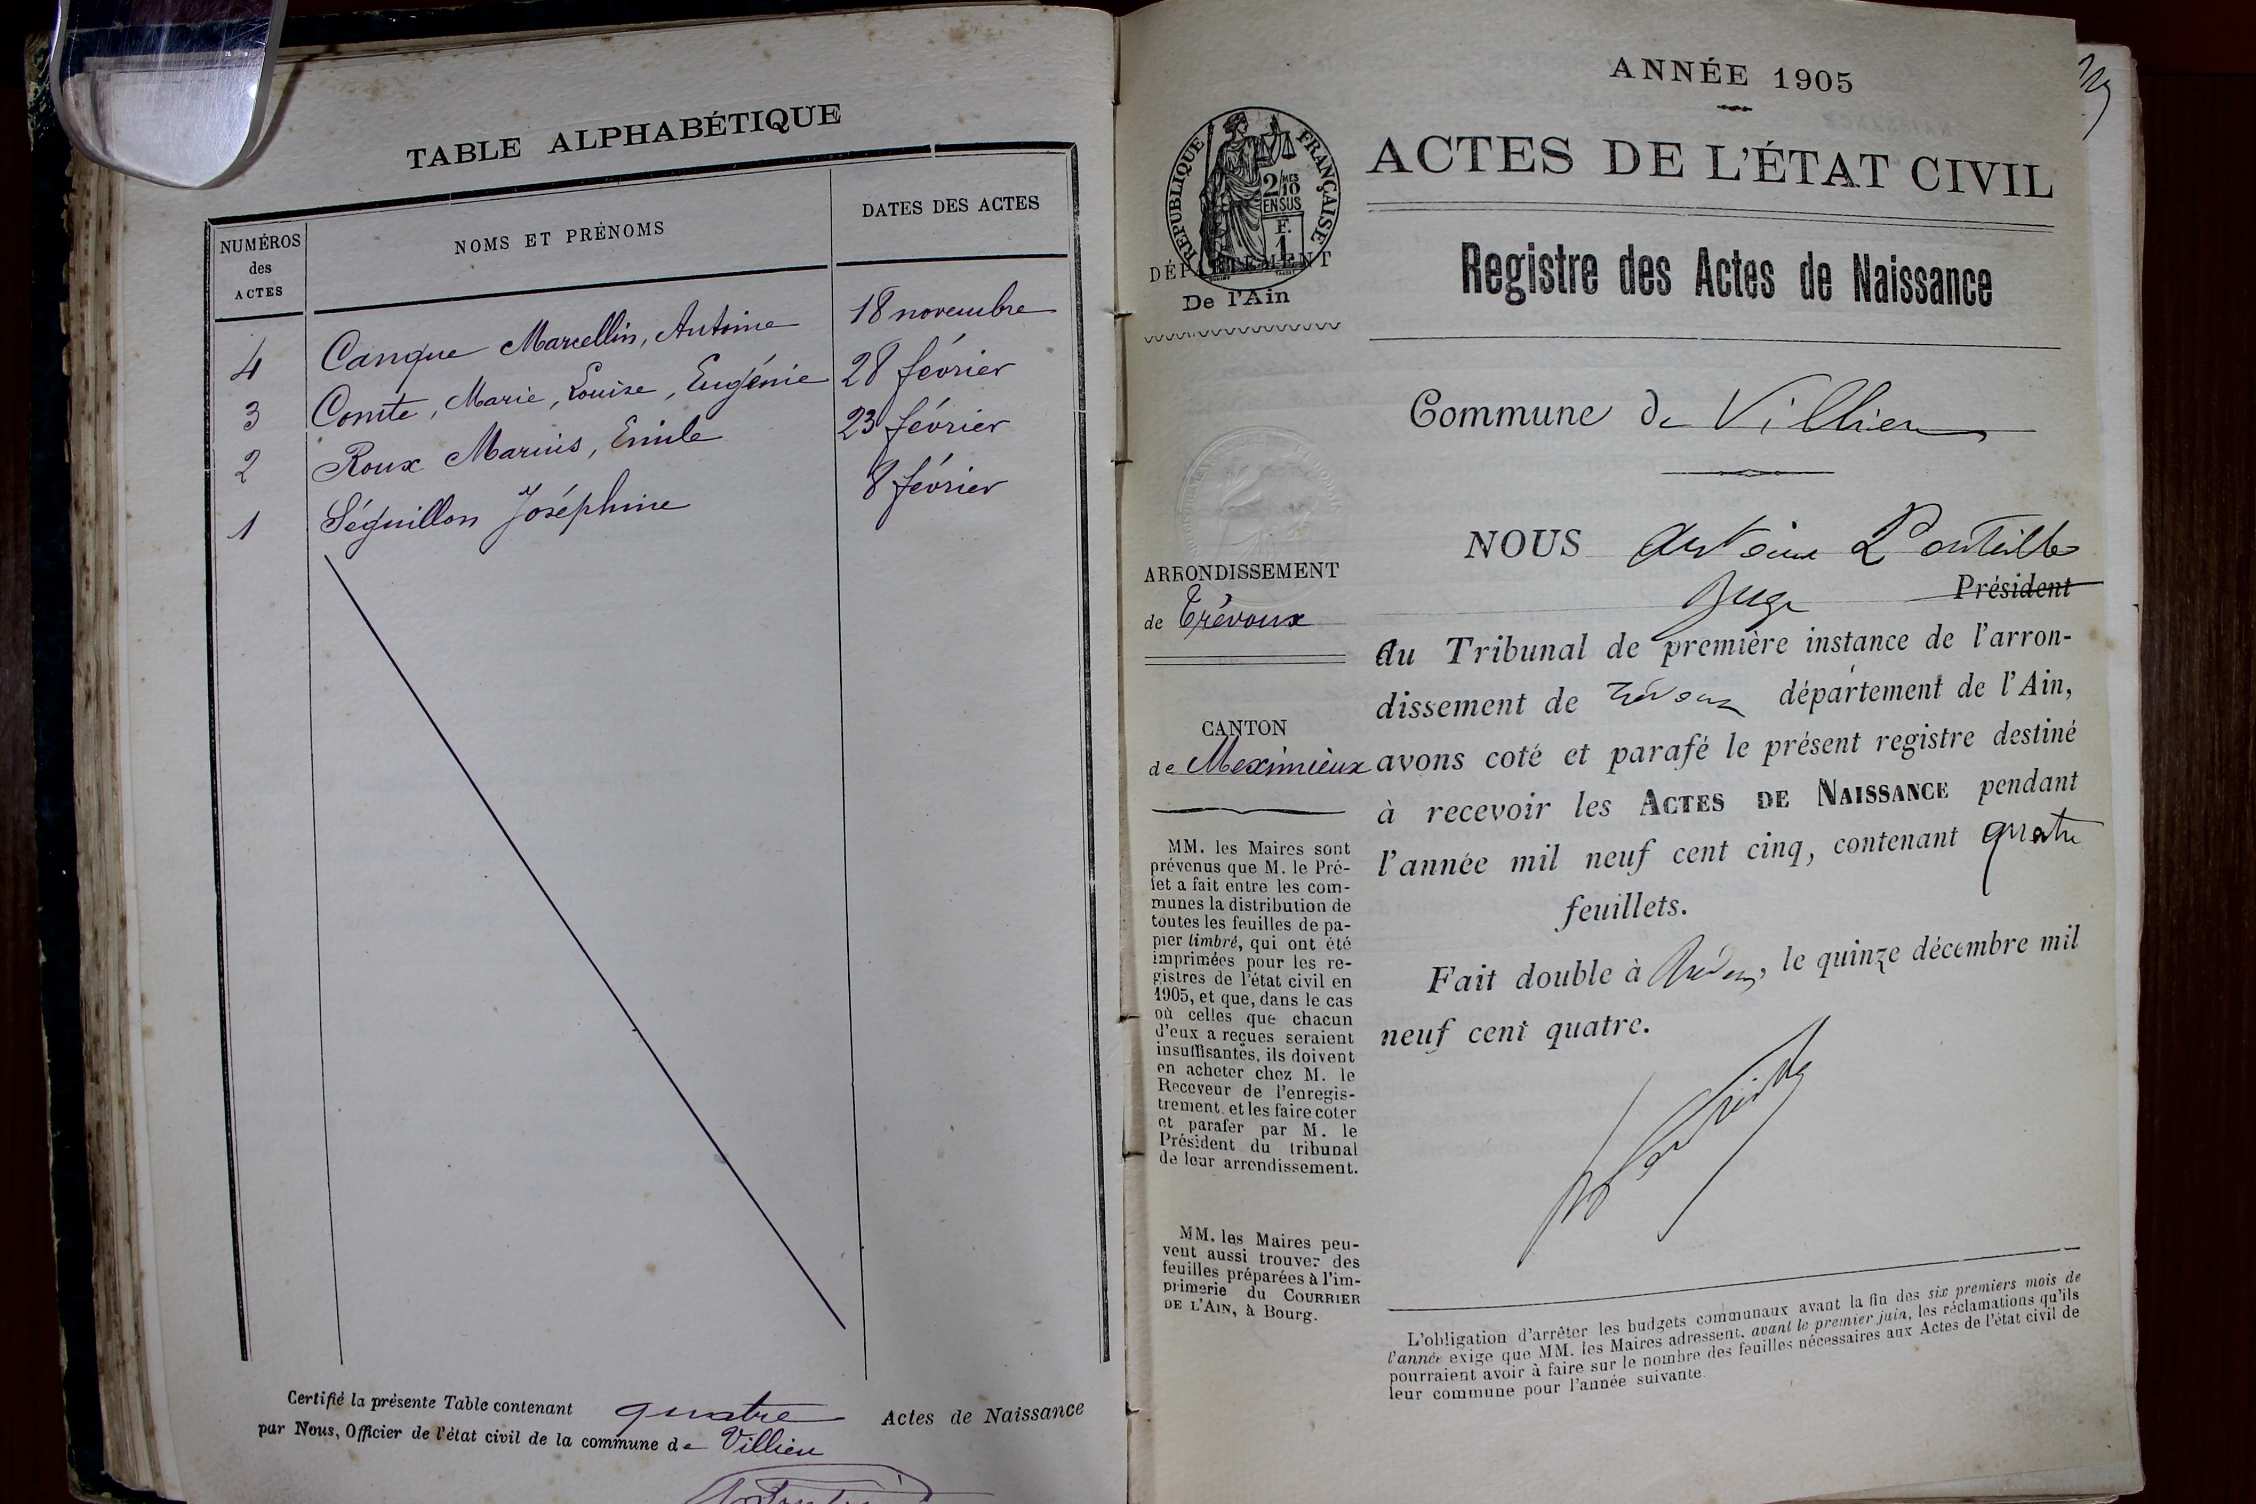 TABLE ALPHABÉTIQUE
NUMÉROS des ACTES
NOMS ET PRÉNOMS
DATES DES ACTES
4 Canque Marcellin, Antoine 18 novembre
3 Comte, Marie, Louise, Eugénie 28 février
2 Roux Marius, Emile 23 février
1 Séguillon Joséphine 8 février
Certifié la présente Table contenant quatre Actes de Naissance
par Nous, Officier de l'état civil de la commune de Villieu
ANNÉE 1905
ACTES DE L'ÉTAT CIVIL
RÉPUBLIQUE FRANÇAISE
2/10 MES
EN SUS
F.
1
DÉPARTEMENT
De l'Ain
Registre des Actes de Naissance
Commune de Villieu
ARRONDISSEMENT
de Trévoux
CANTON
de Meximieux
MM. les Maires sont
prévenus que M. le Pré-
fet a fait entre les com-
munes la distribution de
toutes les feuilles de pa-
pier timbré, qui ont été
imprimées pour les re-
gistres de l'état civil en
1905, et que, dans le cas
où celles que chacun
d'eux a reçues seraient
insuffisantes, ils doivent
en acheter chez M. le
Receveur de l'enregis-
trement et les faire coter
et parafer par M. le
Président du tribunal
de leur arrondissement.
MM. les Maires peu-
vent aussi trouver des
feuilles préparées à l'im-
primerie du COURRIER
DE L'AIN, à Bourg.
NOUS Antoine
Juge Président
au Tribunal de première instance de l'arron-
dissement de Trévoux département de l'Ain,
avons coté et parafé le présent registre destiné
à recevoir les ACTES DE NAISSANCE pendant
l'année mil neuf cent cinq, contenant quatre
feuillets.
Fait double à Trévoux, le quinze décembre mil
neuf cent quatre.
L'obligation d'arrêter les budgets communaux avant la fin des six premiers mois de
l'année exige que MM. les Maires adressent, avant le premier juin, les réclamations qu'ils
pourraient avoir à faire sur le nombre des feuilles nécessaires aux Actes de l'état civil de
leur commune pour l'année suivante.